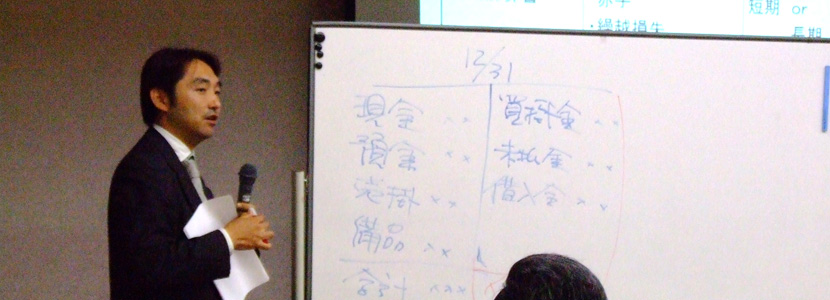 短期 or
・繰越損失
長期
12/31
現金 ××
買掛金 ××
預金 ××
未払金 ××
売掛 ××
借入金 ××
備品 ××
合計 ×××